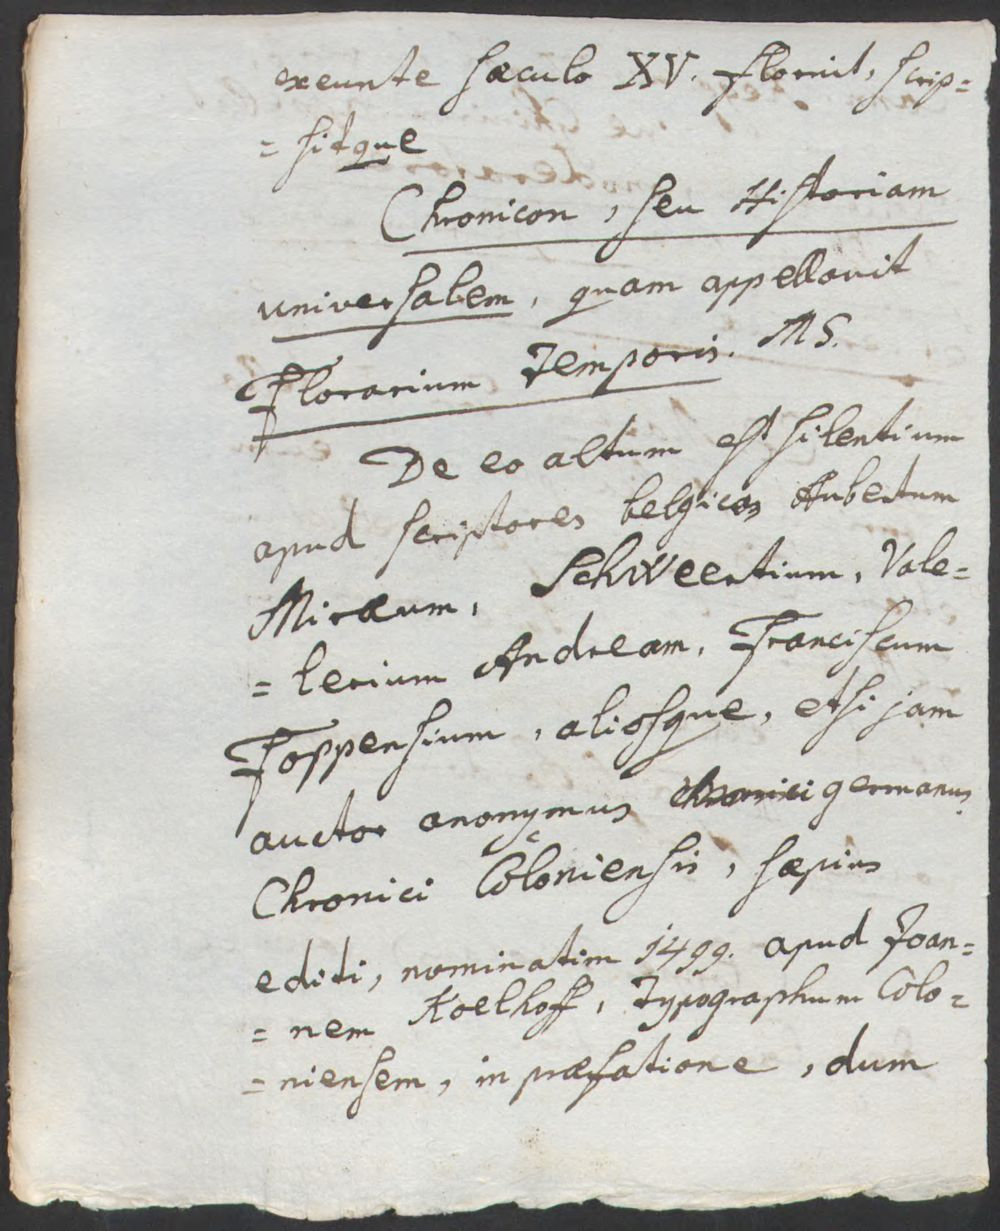 exeunte sæculo XV. floruit, scrip=
= sitque
Chronicon, seu Historiam
universalem, quam appellavit
Florarium Temporis. MS.
De eo altum est silentium
apud scriptores belgicos Aubertum
Miræum, Schweertium, Vale=
= lerium Andream, Franciscum
Foppensium, aliosque, etsi jam
auctor anonymus germanus
Chronici Coloniensis, sæpius
editi, nominatim 1499. apud Joan=
= nem Koelhoff, Typographum Colo=
= niensem, in præfatione, dum